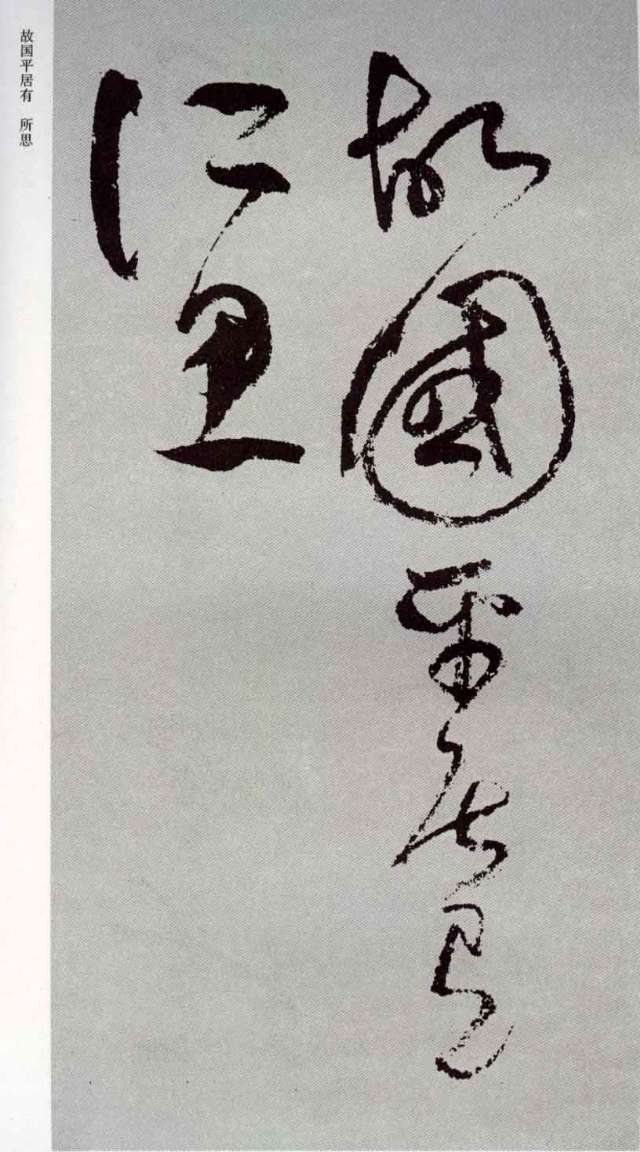 故國平居有
所思
故国平居有 所思